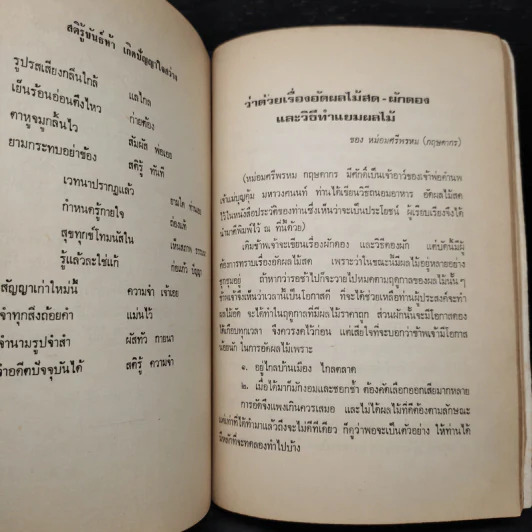 สติรู้ขันธ์ห้า เกิดปัญญาใจสว่าง
รูปรสเสียงกลิ่นใกล้ แลไกล
เย็นร้อนอ่อนตึงไหว ก่ายต้อง
ตาหูจมูกลิ้นไว สัมผัส พ่อเอย
ยามกระทบอย่าข้อง สติรู้ ทันที
เวทนาปรากฏแล้ว
กำหนดรู้กายใจ
สุขทุกข์โทมนัสใน
รู้แล้วละใช่แก้
สัญญาเก่าใหม่นี้ ความจำ เจ้าเอย
จำทุกสิ่งถ้อยคำ แม่นไว้
จำนามรูปจำสำ ผัสทั่ว กายนา
ว่าอดีตปัจจุบันได้ สติรู้ ความจำ
ว่าด้วยเรื่องอัดผลไม้สด-ผักดอง
และวิธีทำแยมผลไม้
ของ หม่อมศรีพรหม (กฤษดากร)
(หม่อมศรีพรหม กฤษดากร มีศักดิ์เป็นเจ้าอาว์ของเจ้าพ่อคำนพ
ท่านได้เขียนวิธีถนอมอาหาร อัดผลไม้สด
ไว้ในหนังสือประวัติของท่านซึ่งเห็นว่าจะเป็นประโยชน์ ผู้เรียบเรียงจึงได้
นำมาตีพิมพ์ไว้ ณ ที่นี้ด้วย)
เดิมข้าพเจ้าจะเขียนเรื่องผักดอง และวิธีดองผัก แต่บัดนี้มีผู้
ต้องการทราบเรื่องอัดผลไม้สด เพราะว่าในขณะนี้มีผลไม้อยู่หลายอย่าง
ชุกชุมอยู่ ถ้าหากว่ารอช้าไปก็จะวายไปหมดตามฤดูกาลของผลไม้นั้น ๆ
ข้าพเจ้าจึงเห็นว่าเวลานี้เป็นโอกาสดี ที่จะได้ช่วยเหลือท่านผู้ประสงค์จะทำ
ผลไม้อัด จะได้ทำในฤดูกาลที่มีผลไม้ราคาถูก ส่วนผักนั้นจะมีโอกาสดอง
ได้เกือบทุกเวลา จึงควรงดไว้ก่อน แต่เสียใจที่จะบอกว่าข้าพเจ้ามีโอกาส
น้อยนัก ในการอัดผลไม้เพราะ
๑. อยู่ไกลบ้านเมือง ไกลตลาด
๒. เมื่อได้มาก็มักงอมและชอกช้ำ ต้องคัดเลือกออกเสียมากหลาย
การอัดจึงแพงเกินควรเสมอ และไม่ได้ผลไม้ที่ดีต้องตามลักษณะ
แต่เท่าที่ได้ทำมาแล้วถึงจะไม่ดีทีเดียว ก็ดูว่าพอจะเป็นตัวอย่าง ให้ท่านได้
มีหลักที่จะทดลองทำไปบ้าง